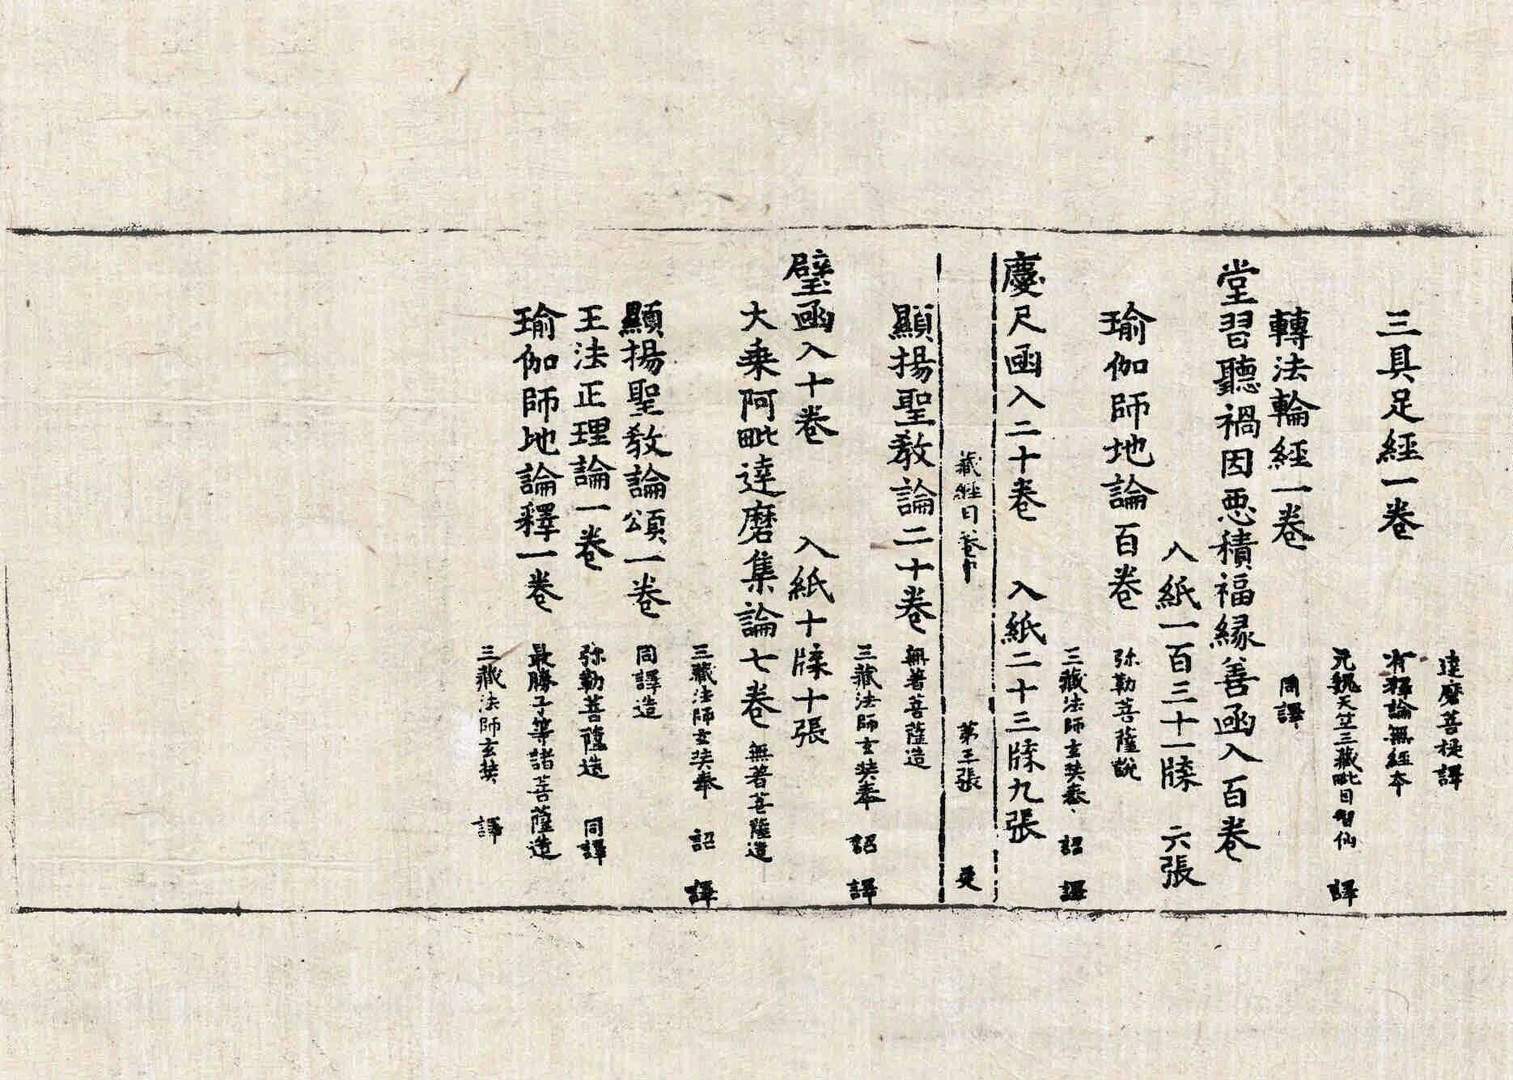 達磨菩提譯
三具足經一卷 有釋論無經本
元魏天竺三藏毗目智仙 譯
轉法輪經一卷 同譯
堂習聽禍因惡積福緣善函入百卷
入紙一百三十一牒 六張
瑜伽師地論百卷 弥勒菩薩説
三藏法師玄奘奉 詔 譯
慶尺函入二十卷 入紙二十三牒九張
藏經目卷中 第三張 更
顯揚聖教論二十卷 無著菩薩造
三藏法師玄奘奉 詔 譯
璧函入十卷 入紙十牒十張
大乘阿毗達磨集論七卷 無著菩薩造
三藏法師玄奘奉 詔 譯
顯揚聖教論頌一卷 同譯造
王法正理論一卷 弥勒菩薩造 同譯
瑜伽師地論釋一卷 最勝子等諸菩薩造
三藏法師玄奘 譯